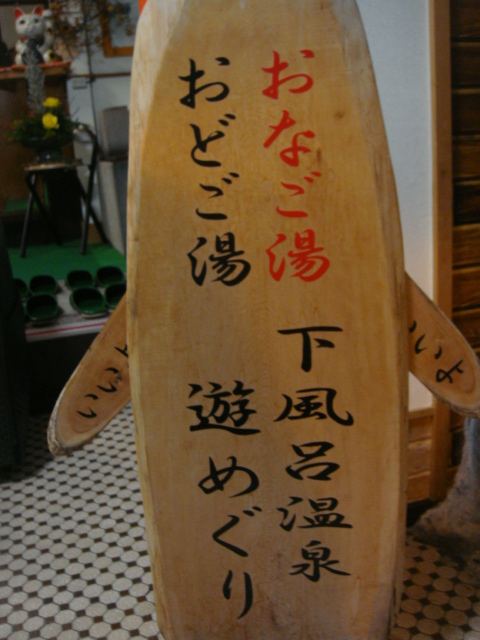 おなご湯
おどご湯
下風呂温泉
遊めぐり
いいよ
いいよ